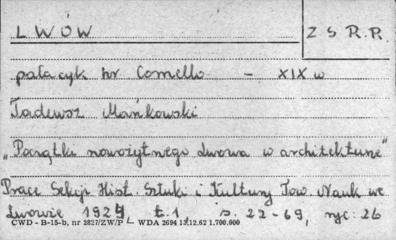 LWÓW
Z S R.R.
pałacyk hr Comello - XIX w
Tadeusz Mańkowski
„Początki nowożytnego Lwowa w architekturze"
Prace Sekcji Hist. Sztuki i Kultury Tow. Nauk we
Lwowie 1924 t.1 s. 22-69, ryc. 26
CWD - B-15-b, nr 2827/ZW/P WDA 2694 13.12.62 1.700.000